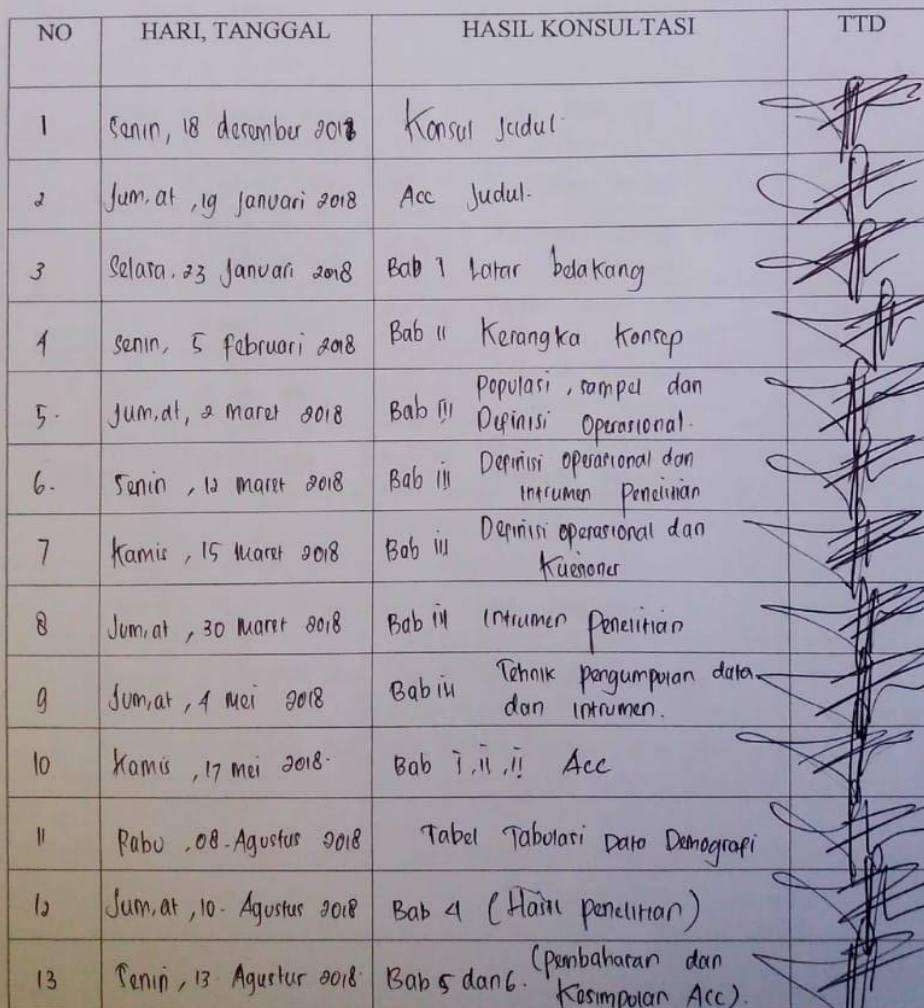 NO HARI, TANGGAL HASIL KONSULTASI TTD
1 Senin, 18 desember 2018 Konsul Judul
2 Jum,at, 19 Januari 2018 Acc Judul.
3 Selasa, 23 Januari 2018 Bab 1 Latar belakang
4 Senin, 5 februari 2018 Bab II Kerangka Konsep
5. Jum,at, 2 maret 2018 Bab III Populasi, sampel dan
Definisi Operasional.
6. Senin, 12 maret 2018 Bab III Definisi operasional dan
Intrumen Penelitian
7 Kamis, 15 Maret 2018 Bab III Definisi operasional dan
Kuesioner
8 Jum,at, 30 Maret 2018 Bab III Intrumen Penelitian
9 Jum,at, 4 Mei 2018 Bab III Tehnik pengumpulan data
dan Intrumen.
10 Kamis, 17 mei 2018. Bab i, ii, ii Acc
11 Rabu, 08-Agustus 2018 Tabel Tabulasi Data Demografi
12 Jum,at, 10-Agustus 2018 Bab 4 (Hasil penelitian)
13 Senin, 13-Agustus 2018 Bab 5 dan 6. (Pembahasan dan
Kesimpulan Acc).